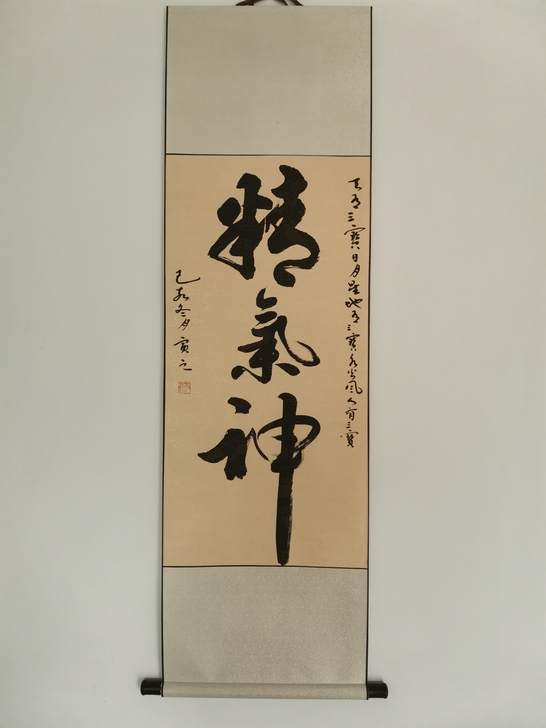 天有三寶日月星地有三寶水火風人有三寶
精氣神
己亥冬月寅之